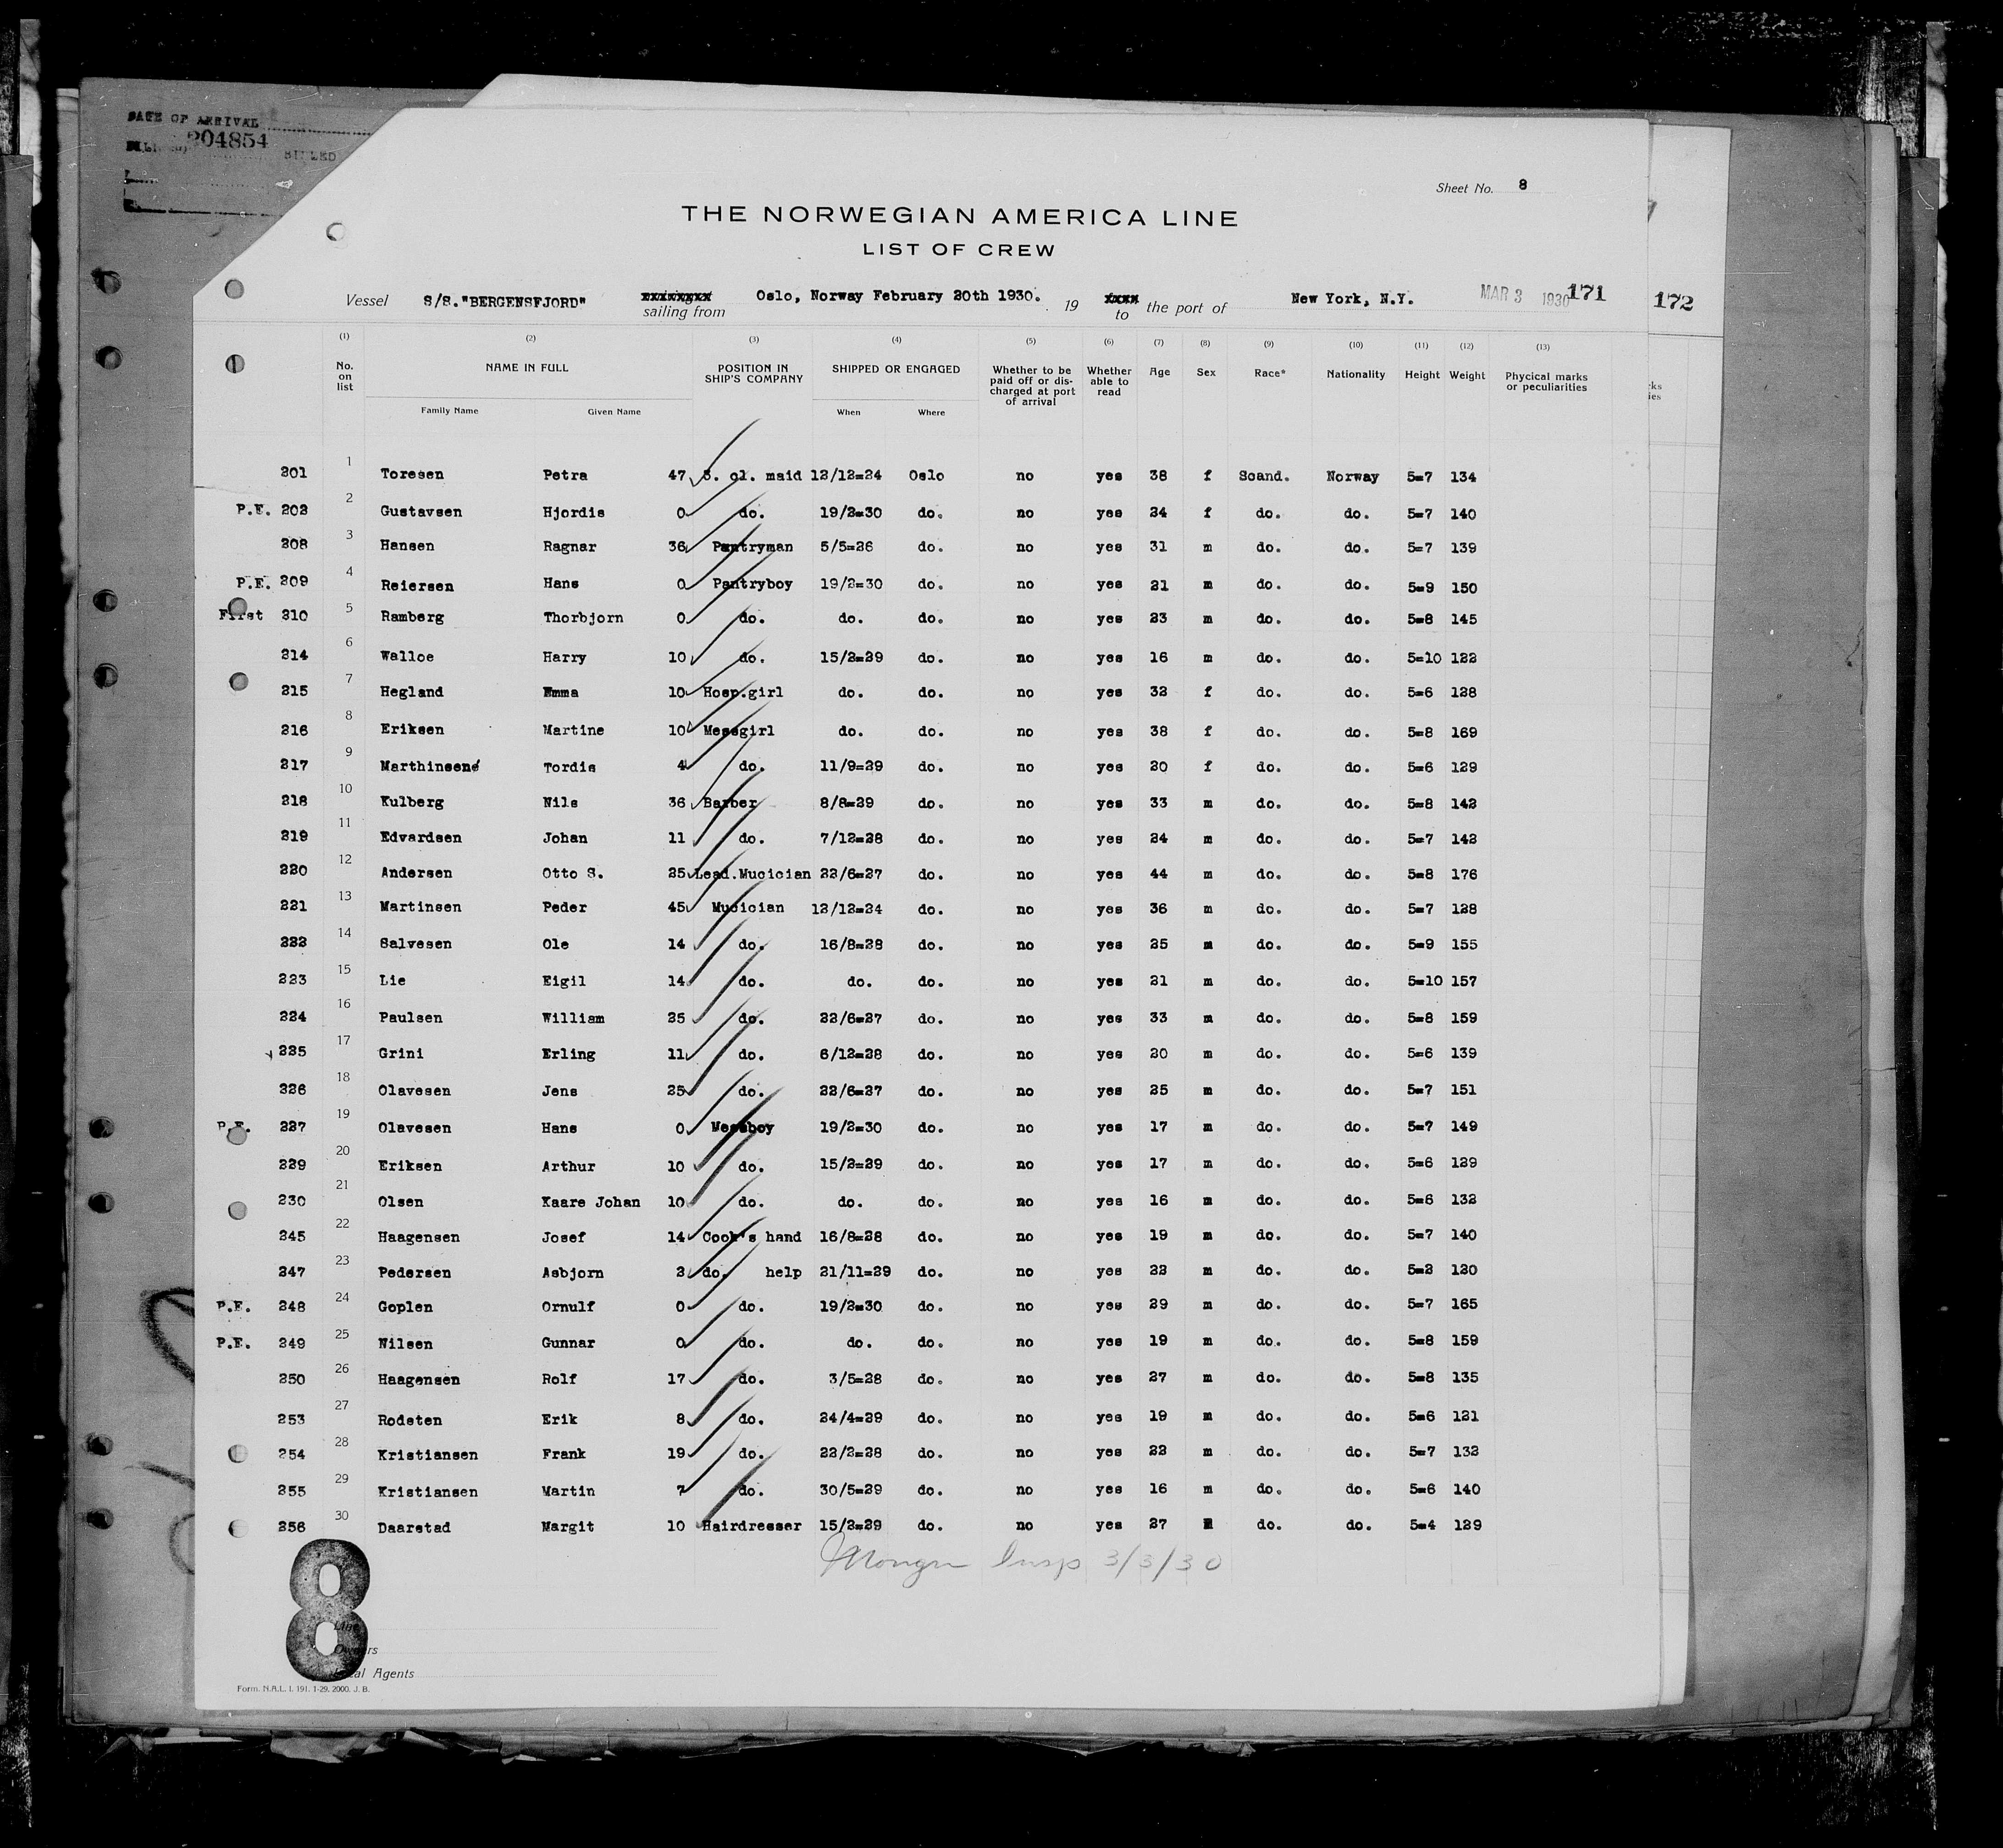 DATE OF ARRIVAL
204854
BILLED
Sheet No. 8
THE NORWEGIAN AMERICA LINE
LIST OF CREW
Vessel S/S."BERGENSFJORD" sailing from Oslo, Norway February 20th 1930. 19 to the port of New York, N.Y. MAR 3 1930 171 172
(1) (2) (3) (4) (5) (6) (7) (8) (9) (10) (11) (12) (13)
No. on list NAME IN FULL POSITION IN SHIP'S COMPANY SHIPPED OR ENGAGED Whether to be paid off or discharged at port of arrival Whether able to read Age Sex Race* Nationality Height Weight Phycical marks or peculiarities
Family Name Given Name When Where
201 1 Toresen Petra 47 3. cl. maid 12/12=24 Oslo no yes 38 f Scand. Norway 5=7 134
P.E. 202 2 Gustavsen Hjordis 0 do. 19/2=30 do. no yes 24 f do. do. 5=7 140
208 3 Hansen Ragnar 36 Pantryman 5/5=26 do. no yes 31 m do. do. 5=7 139
P.E. 209 4 Reiersen Hans 0 Pantryboy 19/2=30 do. no yes 21 m do. do. 5=9 150
First 210 5 Ramberg Thorbjorn 0 do. do. do. no yes 23 m do. do. 5=8 145
214 6 Walloe Harry 10 do. 15/2=29 do. no yes 16 m do. do. 5=10 122
215 7 Hegland Emma 10 Hosp.girl do. do. no yes 32 f do. do. 5=6 128
216 8 Eriksen Martine 10 Messgirl do. do. no yes 38 f do. do. 5=8 169
217 9 Marthinsen Tordis 4 do. 11/9=29 do. no yes 20 f do. do. 5=6 129
218 10 Kulberg Nils 36 Barber 8/8=29 do. no yes 33 m do. do. 5=8 142
219 11 Edvardsen Johan 11 do. 7/12=28 do. no yes 24 m do. do. 5=7 142
220 12 Andersen Otto S. 25 Lead.Mucician 22/6=27 do. no yes 44 m do. do. 5=8 176
221 13 Martinsen Peder 45 Mucician 12/12=24 do. no yes 36 m do. do. 5=7 128
222 14 Salvesen Ole 14 do. 16/8=28 do. no yes 25 m do. do. 5=9 155
223 15 Lie Eigil 14 do. do. do. no yes 21 m do. do. 5=10 157
224 16 Paulsen William 25 do. 22/6=27 do. no yes 33 m do. do. 5=8 159
225 17 Grini Erling 11 do. 6/12=28 do. no yes 20 m do. do. 5=6 139
226 18 Olavesen Jens 25 do. 22/6=27 do. no yes 25 m do. do. 5=7 151
P.E. 227 19 Olavesen Hans 0 Messboy 19/2=30 do. no yes 17 m do. do. 5=7 149
229 20 Eriksen Arthur 10 do. 15/2=29 do. no yes 17 m do. do. 5=6 129
230 21 Olsen Kaare Johan 10 do. do. do. no yes 16 m do. do. 5=6 132
245 22 Haagensen Josef 14 Cook's hand 16/8=28 do. no yes 19 m do. do. 5=7 140
247 23 Pedersen Asbjorn 2 do. help 21/11=29 do. no yes 22 m do. do. 5=2 120
P.E. 248 24 Goplen Ornulf 0 do. 19/2=30 do. no yes 29 m do. do. 5=7 165
P.E. 249 25 Nilsen Gunnar 0 do. do. do. no yes 19 m do. do. 5=8 159
250 26 Haagensen Rolf 17 do. 3/5=28 do. no yes 27 m do. do. 5=8 135
253 27 Rodsten Erik 8 do. 24/4=29 do. no yes 19 m do. do. 5=6 121
254 28 Kristiansen Frank 19 do. 22/2=28 do. no yes 22 m do. do. 5=7 132
255 29 Kristiansen Martin 7 do. 30/5=29 do. no yes 16 m do. do. 5=6 140
256 30 Daarstad Margit 10 Hairdresser 15/2=29 do. no yes 27 do. do. 5=4 129
Insp 3/3/30
8
Line
Owners
Local Agents
Form. N.A.L. I. 191. 1-29. 2000. J. B.